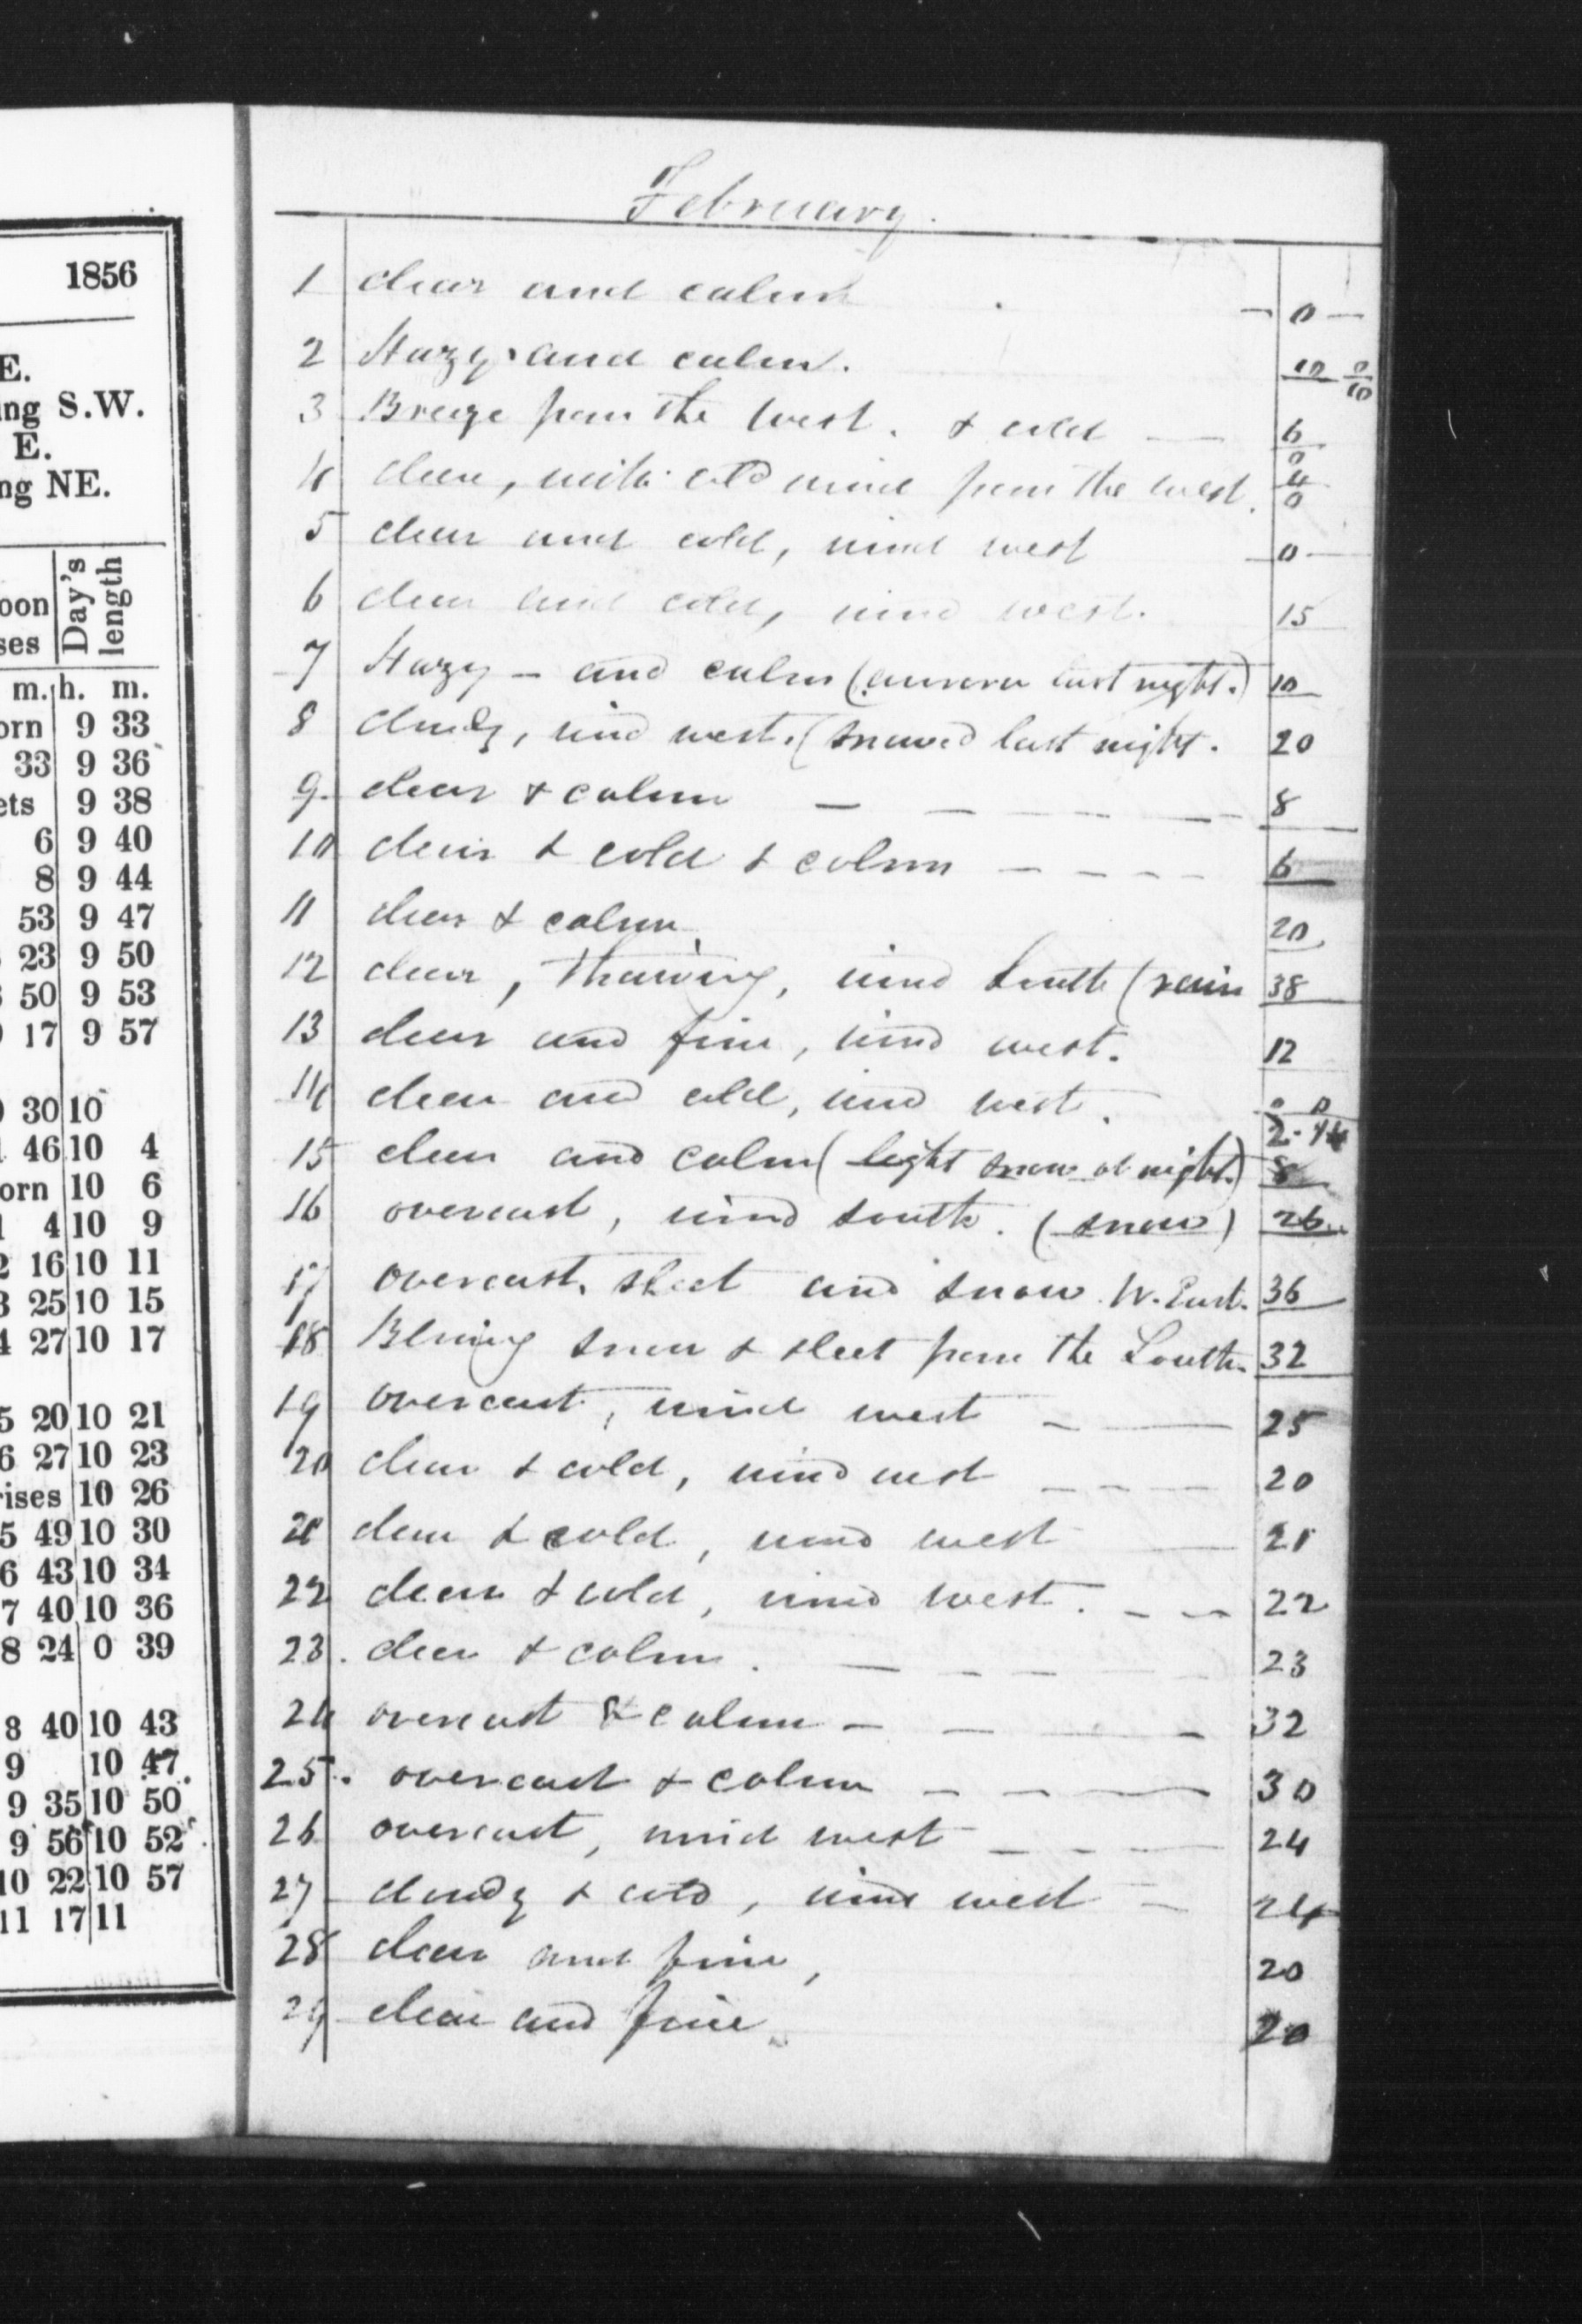 1856
E.
ing S.W.
E.
ng NE.
oon
ses
Day's
length
m. h. m.
orn 9 33
33 9 36
ets 9 38
6 9 40
8 9 44
53 9 47
23 9 50
50 9 53
17 9 57
30 10
46 10 4
orn 10 6
4 10 9
2 16 10 11
3 25 10 15
4 27 10 17
5 20 10 21
6 27 10 23
rises 10 26
5 49 10 30
6 43 10 34
7 40 10 36
8 24 0 39
8 40 10 43
9 10 47
9 35 10 50
9 56 10 52
10 22 10 57
11 17 11
February.
1 clear and calm — 0 —
2 Hazy and calm. 10 0/10
3 Breeze from the West. & cold — 6/0
4 clear, with cold wind from the west. 4/0
5 clear and cold, wind west — 0 —
6 clear and cold, wind west. 15
7 Hazy – and calm (aurora last night.) 10
8 cloudy, wind west. (snowed last night. 20
9 clear & calm — — — — 8
10 clear & cold & calm — — — — 6
11 clear & calm. 20
12 clear, thawing, wind South (rain 38
13 clear and fine, wind west. 12
14 clear and cold, wind west.
15 clear and calm (light snow at night.) 8
16 overcast, wind south. (snow) 26
17 overcast, sleet and snow W. East. 36
18 Blowing snow & sleet from the South. 32
19 overcast, wind west — — 25
20 clear & cold, wind west — — — 20
21 clear & cold, wind west — 21
22 clear & cold, wind west. — — 22
23. clear & calm. — — — — 23
24 overcast & calm — — — — 32
25. overcast & calm — — — 30
26 overcast, wind west — — — 24
27 cloudy & cold, wind west — 24
28 clear and fine, 20
29 clear and fine. 20